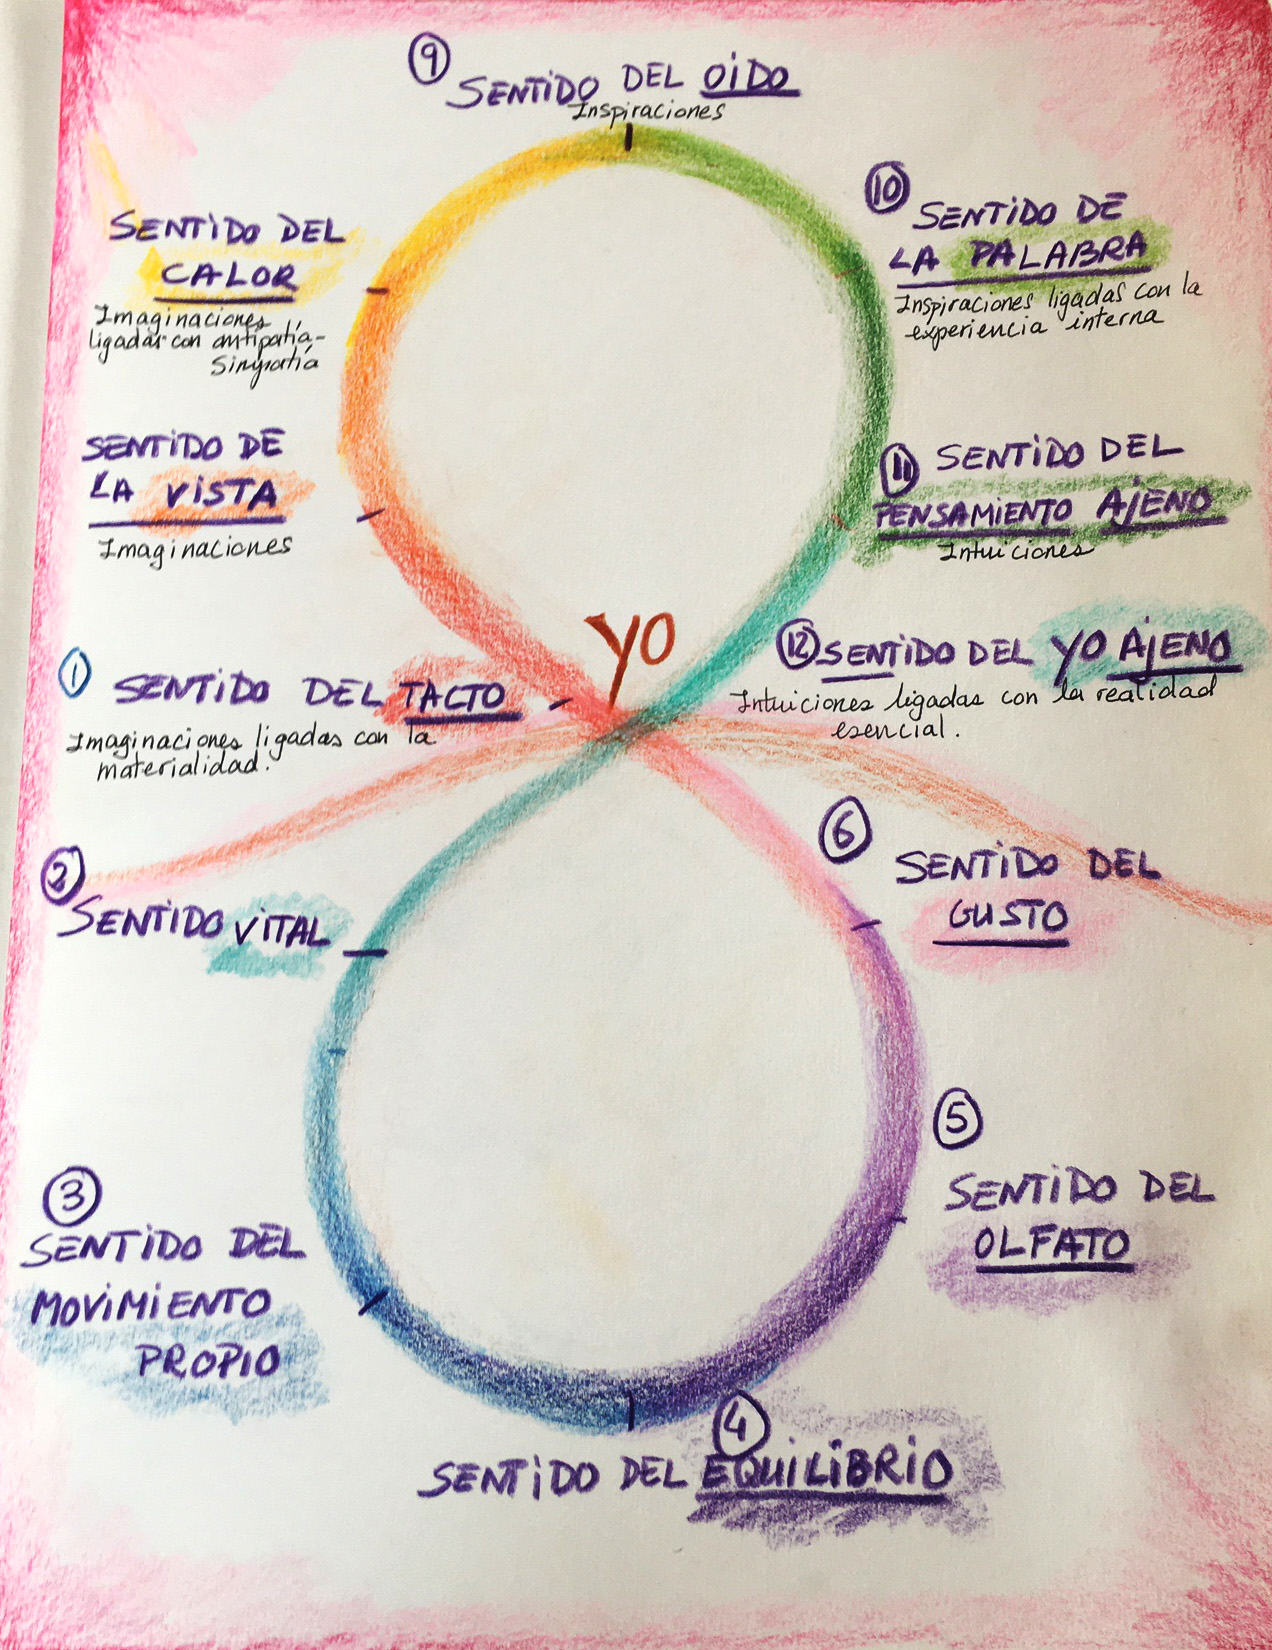 9
SENTIDO DEL OIDO
Inspiraciones
10
SENTIDO DE
LA PALABRA
Inspiraciones ligadas con la
experiencia interna
SENTIDO DEL
CALOR
Imaginaciones
ligadas con antipatía-
Simpatía
SENTIDO DE
LA VISTA
Imaginaciones
11
SENTIDO DEL
PENSAMIENTO AJENO
Intuiciones
YO
12 SENTIDO DEL YO AJENO
Intuiciones ligadas con la realidad
esencial.
1
SENTIDO DEL TACTO
Imaginaciones ligadas con la
materialidad.
2
SENTIDO VITAL
6
SENTIDO DEL
GUSTO
3
SENTIDO DEL
MOVIMIENTO
PROPIO
5
SENTIDO DEL
OLFATO
4
SENTIDO DEL EQUILIBRIO